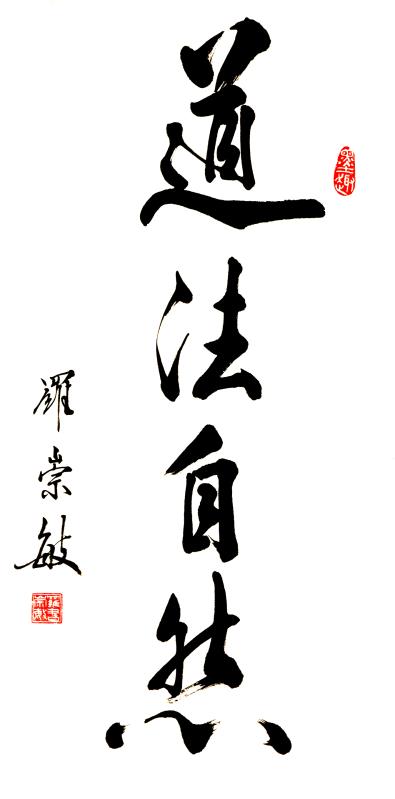 道法自然
羅崇敏